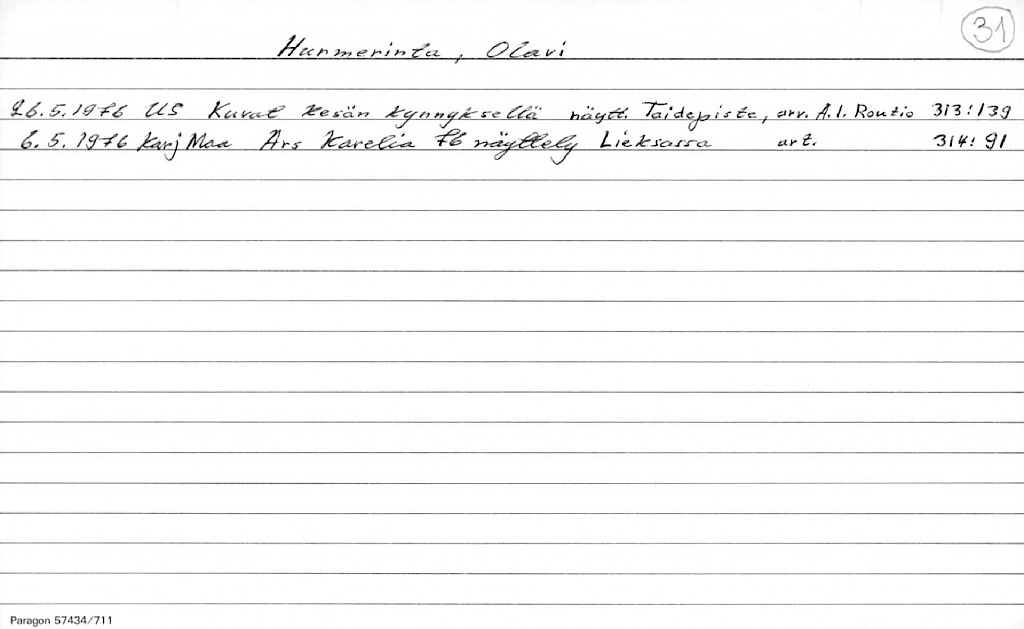 31
Hurmerinta, Olavi
26.5.1976 US Kuvat kesän kynnyksellä näytt. Taidepiste, arv. A.I. Routio 313:139
6.5.1976 Karj Maa Ars Karelia 76 näyttely Lieksassa art. 314:91
Paragon 57434/711